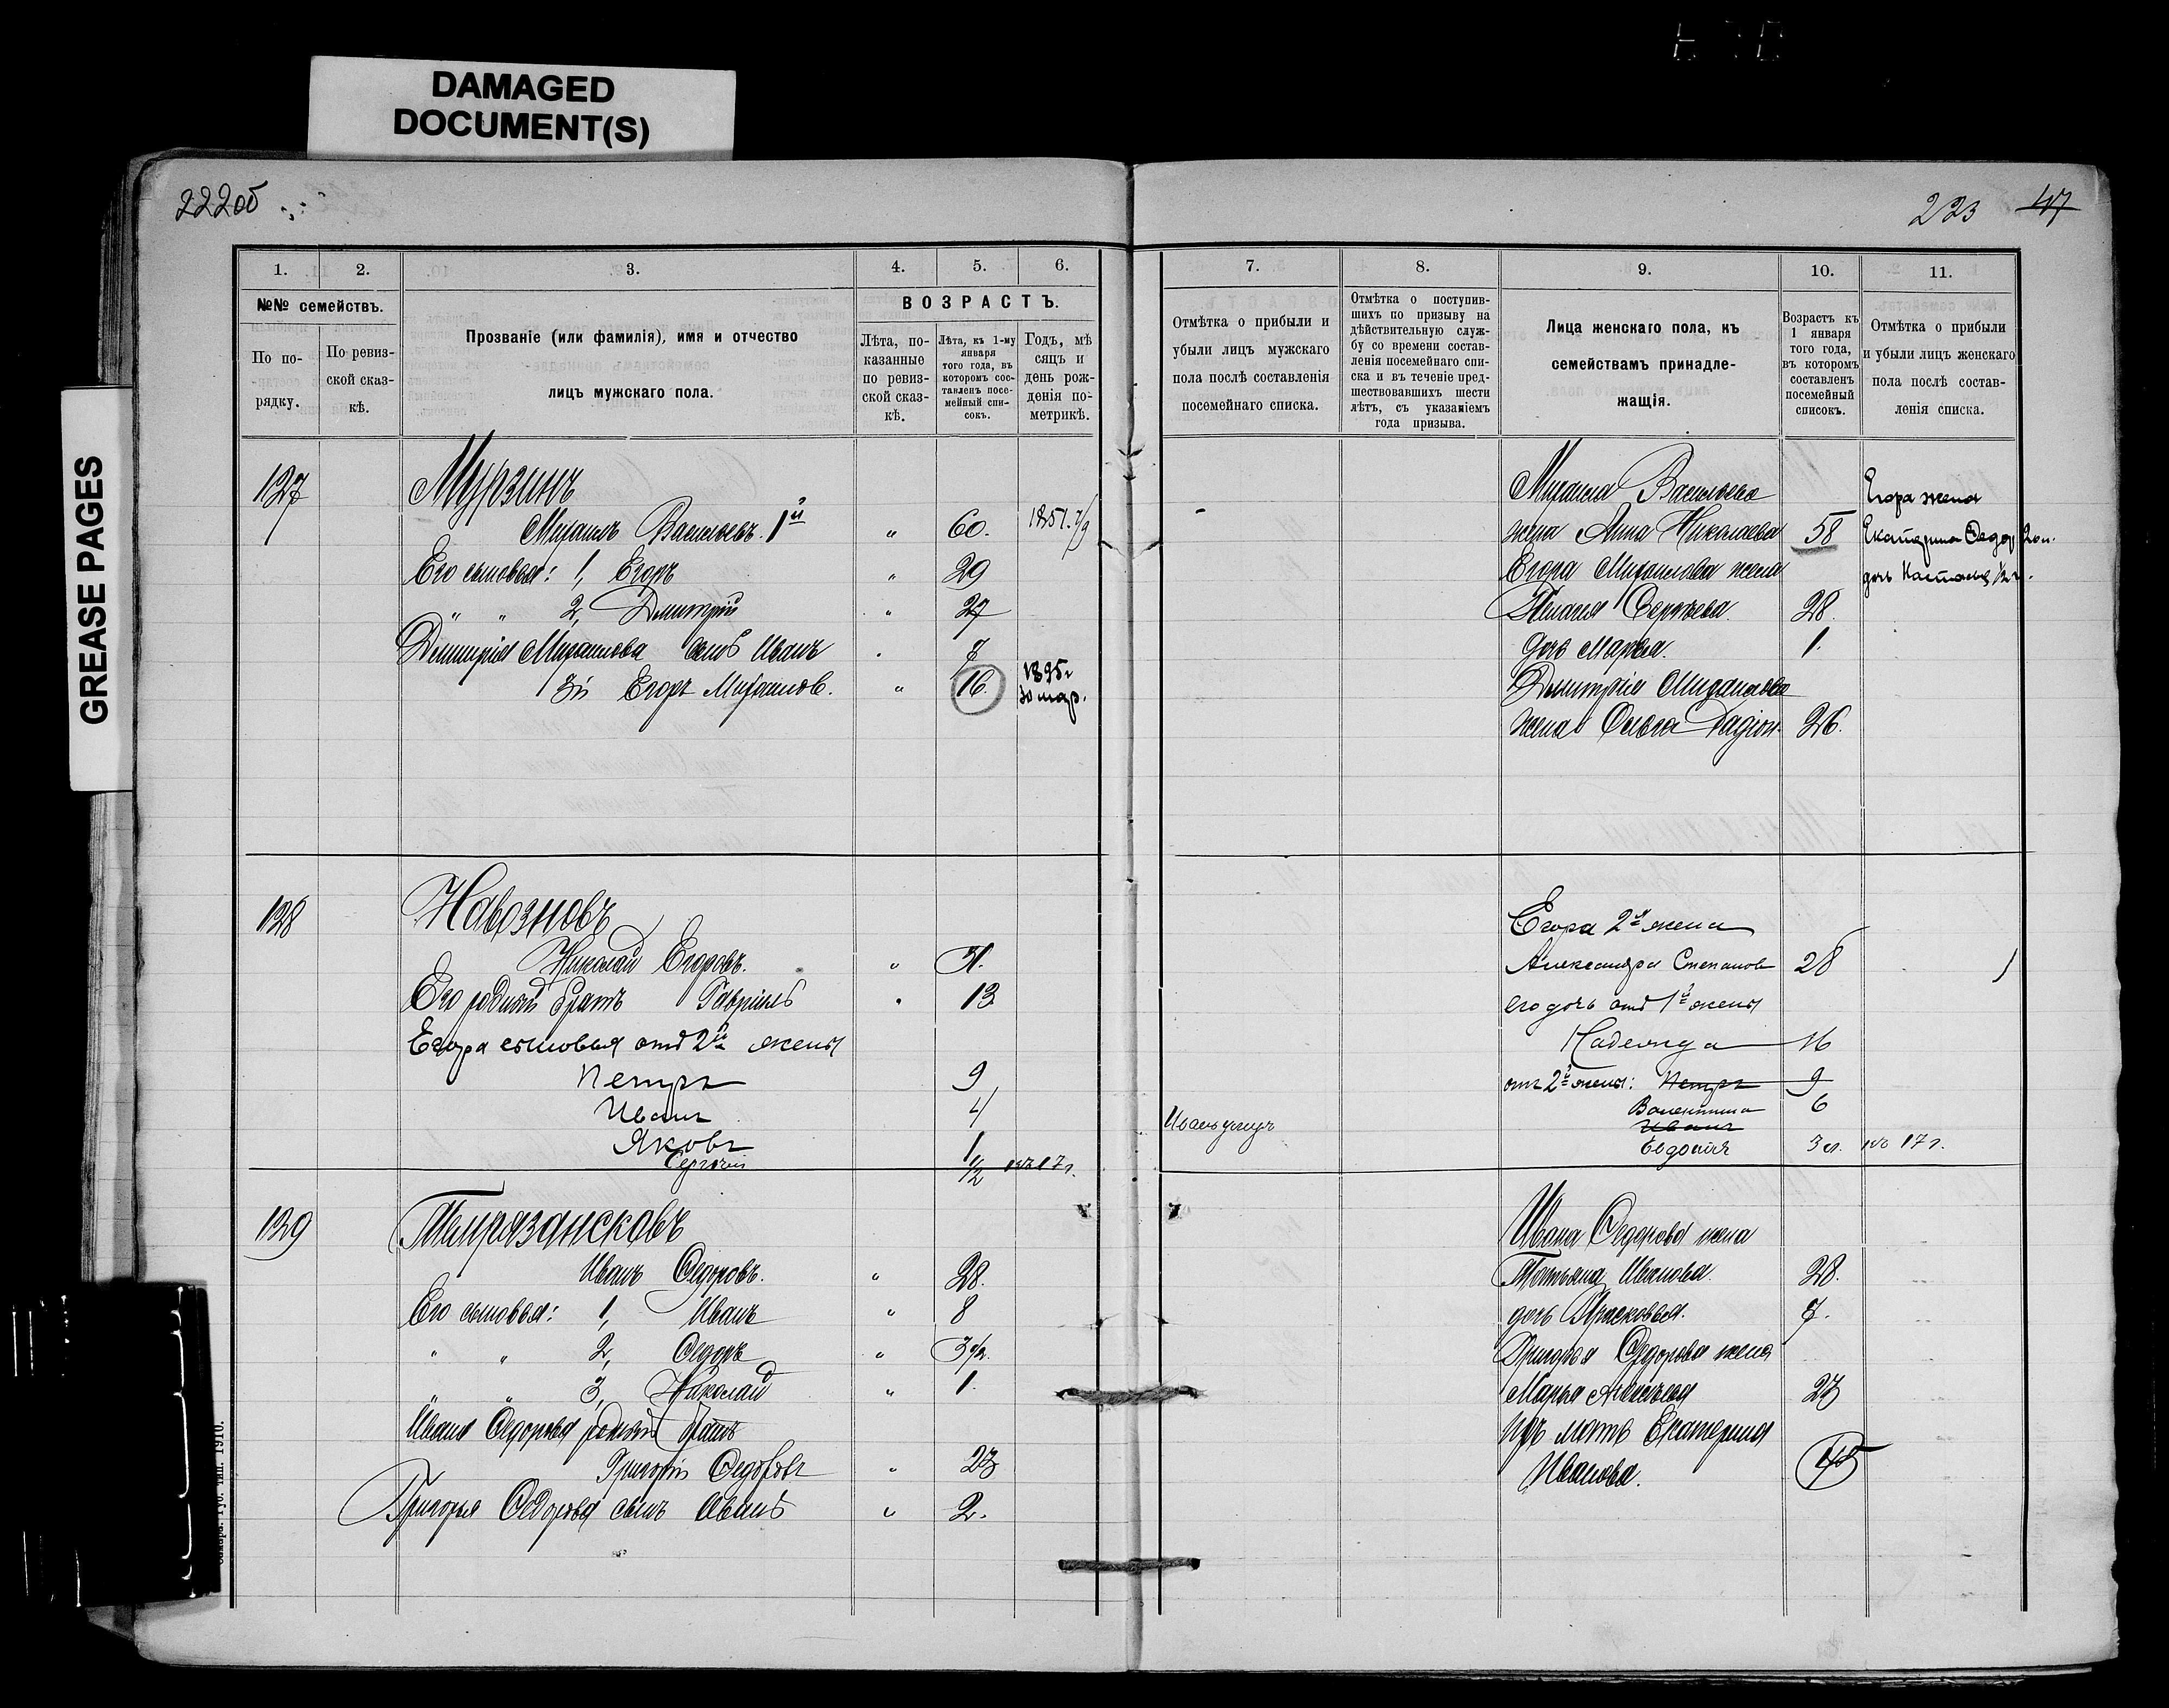 DAMAGED
DOCUMENT(S)
GREASE PAGES
222об
1.
2.
3.
4.
5.
6.
№№ семействъ.
По по-
рядку.
По ревиз-
ской сказ-
кѣ.
Прозваніе (или фамилія), имя и отчество
лицъ мужскаго пола.
ВОЗРАСТЪ.
Лѣта, по-
казанные
по ревиз-
ской сказ-
кѣ.
Лѣта, къ 1-му
января
того года, въ
которомъ сос-
тавленъ посе-
мейный спи-
сокъ.
Годъ, мѣ
сяцъ и
день рож-
денія по-
метрикѣ.
127 Мурзинъ
Михаилъ Васильевъ. 1й " 60. 1851. 7/9
Его сыновья: 1, Егоръ " 29
" " 2, Дмитрій " 27
Дмитрія Михаилова сынъ Иванъ
3й Егоръ Михаилов. " 16. 1895г
30 мар.
128 Навозновъ
Николай Егоровъ. "
Его родной братъ Гавріилъ " 13
Егора сыновья отъ 2й жены
Петръ 9
Иванъ 4
Яковъ 1
Сергѣй 1/2 17г.
129
Иванъ Федоровъ. " 28.
Его сыновья: 1, Иванъ " 8
" " 2, Федоръ " 3 1/2.
" " 3, Николай " 1.
Ивана Федорова родной братъ
Григорій Федоровъ " 23
Григорья Федорова сынъ Иванъ " 2.
Самара. Губ. тип. 1910.
223 47
7.
8.
9.
10.
11.
Отмѣтка о прибыли и
убыли лицъ мужскаго
пола послѣ составленія
посемейнаго списка.
Отмѣтка о поступив-
шихъ по призыву на
дѣйствительную служ-
бу со времени состав-
ленія посемейнаго спи-
ска и въ теченіе пред-
шествовавшихъ шести
лѣтъ, съ указаніемъ
года призыва.
Лица женскаго пола, къ
семействамъ принадле-
жащія.
Возрастъ къ
1 января
того года,
въ которомъ
составленъ
посемейный
списокъ.
Отмѣтка о прибыли
и убыли лицъ женскаго
пола послѣ состав-
ленія списка.
Михаила Васильева Егора жена
жена Анна Николаева 58 Екатерина Федор 20л.
Егора Михаилова жена дочь 1/2 г.
Пелагея Сергѣева 28.
дочь Марья. 1.
Дмитрія Михаилова
жена Ольга Радіон. 26.
Егора 2я жена
Александра Степанов 28
его дочь отъ 1й жены
Надежда 16
отъ 2й жены: Петръ 9
Валентина 6
Иванъ
Евдокія 3 л. 17 г.
Иванъ
Ивана Федорова жена
Татьяна Иванова. 28.
дочь Прасковья. 7.
Григорья Федорова жена
Марья Алексѣева 23
Ихъ мать Екатерина
Иванова. 45